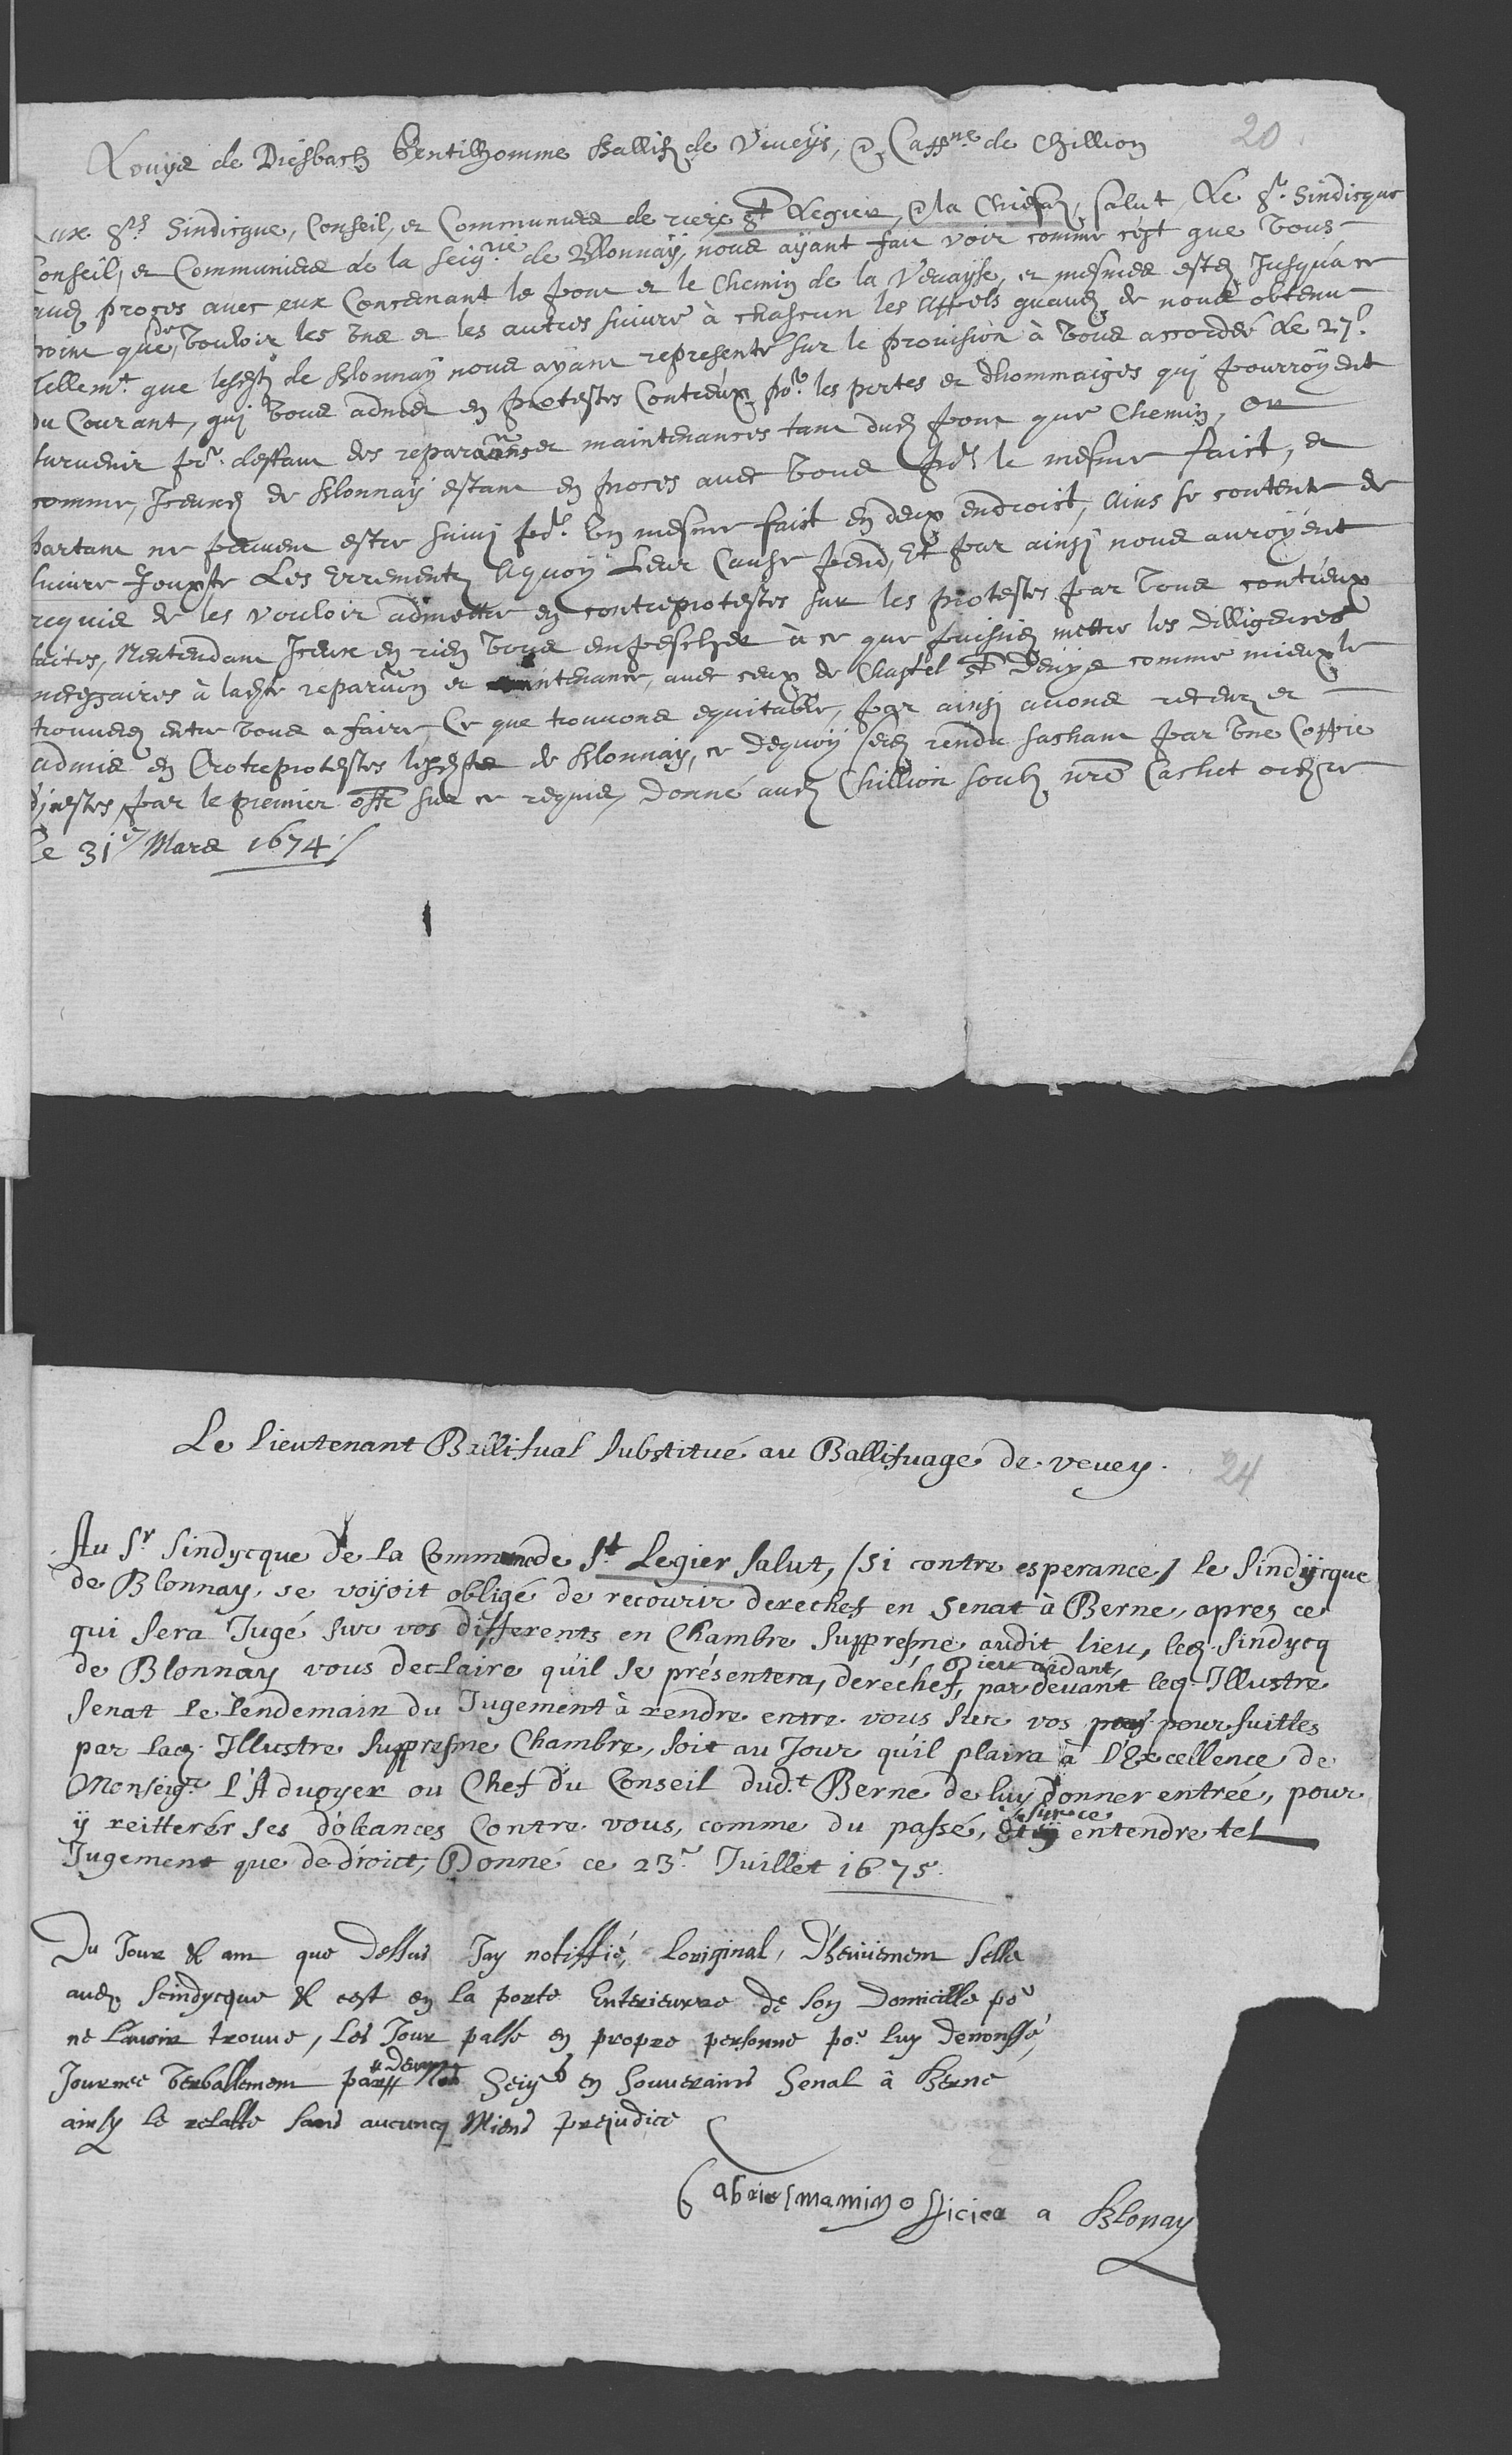 20
Louys de Diesbach Gentilhomme Ballif de Viueÿs, & Capp.ne de Chillion
Aux Srs Sindicque, Conseil, et Communiers de riere St Legier, & la Chiesaz, salut, Le Sr. Sindicque
Conseil, et Communiers de la seig.rie de Blonnaÿ, nous aÿant fait voir comme c'est que vous
auez proces auec eux Concernant le pont et le Chemin de la Veuaÿse, et mesmes estez Jusqu'a ce
point que de vouloir les vns et les autres suiure à chascun les appels qu'auez de nous obtenu
Tellemt. que lesdts de Blonnaÿ nous aÿant representé sur le prouision à vous accordée Le 27e.
du Courant, qui vous admet en protestes Contreux por. les pertes et dhommaiges qui pourroÿent
suruenir por. deffaut des reparaons et maintenances tant dud pont que Chemin, Or
comme, Iceux de Blonnaÿ estant en proces auec vous por le mesme faict, et
partant ne peuuent estre suiui por. vn mesme faict en deux endroict, Ains se contente de
suiure Jouxte Les Errements Aquoÿ Leur Cause pend, Et par ainsi nous auroÿent
requis de les vouloir admettre en contreprotestes sur les protestes par vous contreux
faites, N'entendant Iceux en rien vous empescher à ce que puissiez mettre les dilligences
necessaires à ladte reparaon et maintenance, auec ceux de Chastel St Denÿs comme mieux le
trouuerez entre vous a faire, Ce que trouuons equitable, par ainsi auons receuz et
admis en Crotreprotestes lesdts de Blonnaÿ, ce Dequoÿ serez rendu sachant par vne Coppie
d'jcestes, par le premier offr sur ce requis, Donné aud Chillion soub nre Cachet
Ce 31e Mars 1674
24
Le Lieutenant Ballifual Substitué au Ballifuage de veuey.
Au Sr. Sindycque de la Commune de St Legier salut, /si contre esperance/ le Sindycque
de Blonnay, se voÿoit obligé de recourir derechef en Senat à Berne, apres ce
qui sera Jugé sur vos differents en Chambre Suppresme audit lieu, led. Sindycq
de Blonnay vous declaire qu'il se présentera, derechef, Dieu aidant, par deuant led. Illustre
Senat le lendemain du Jugement à rendre entre vous sur vos poursuittes
par lad. Illustre Suppresme Chambre, soit au Jour qu'il plaira à l'Excellence de
Monseigr. l'Aduoyer ou Chef du Conseil dud.t Berne de luy donner entrée, pour
ÿ reitterér ses doleances Contre vous, comme du passé, et sur ce entendre tel
Jugement que de droict, Donné ce 23e Juillet 1675.
Du Jour & an que dessus Jay notiffié, Loriginal,
aud Scindycque & cest en la porte Enterieurre de son Domicille por
ne Lauoir trouué, Led Jour passé en propre personne por. luy denonssé,
Journee verballement deuant nos Seigrs en Souuerains Senat à Berne
ainsy le relatte sans aucuncq Miens prejudice
Gabriel mamin officier a Blonay